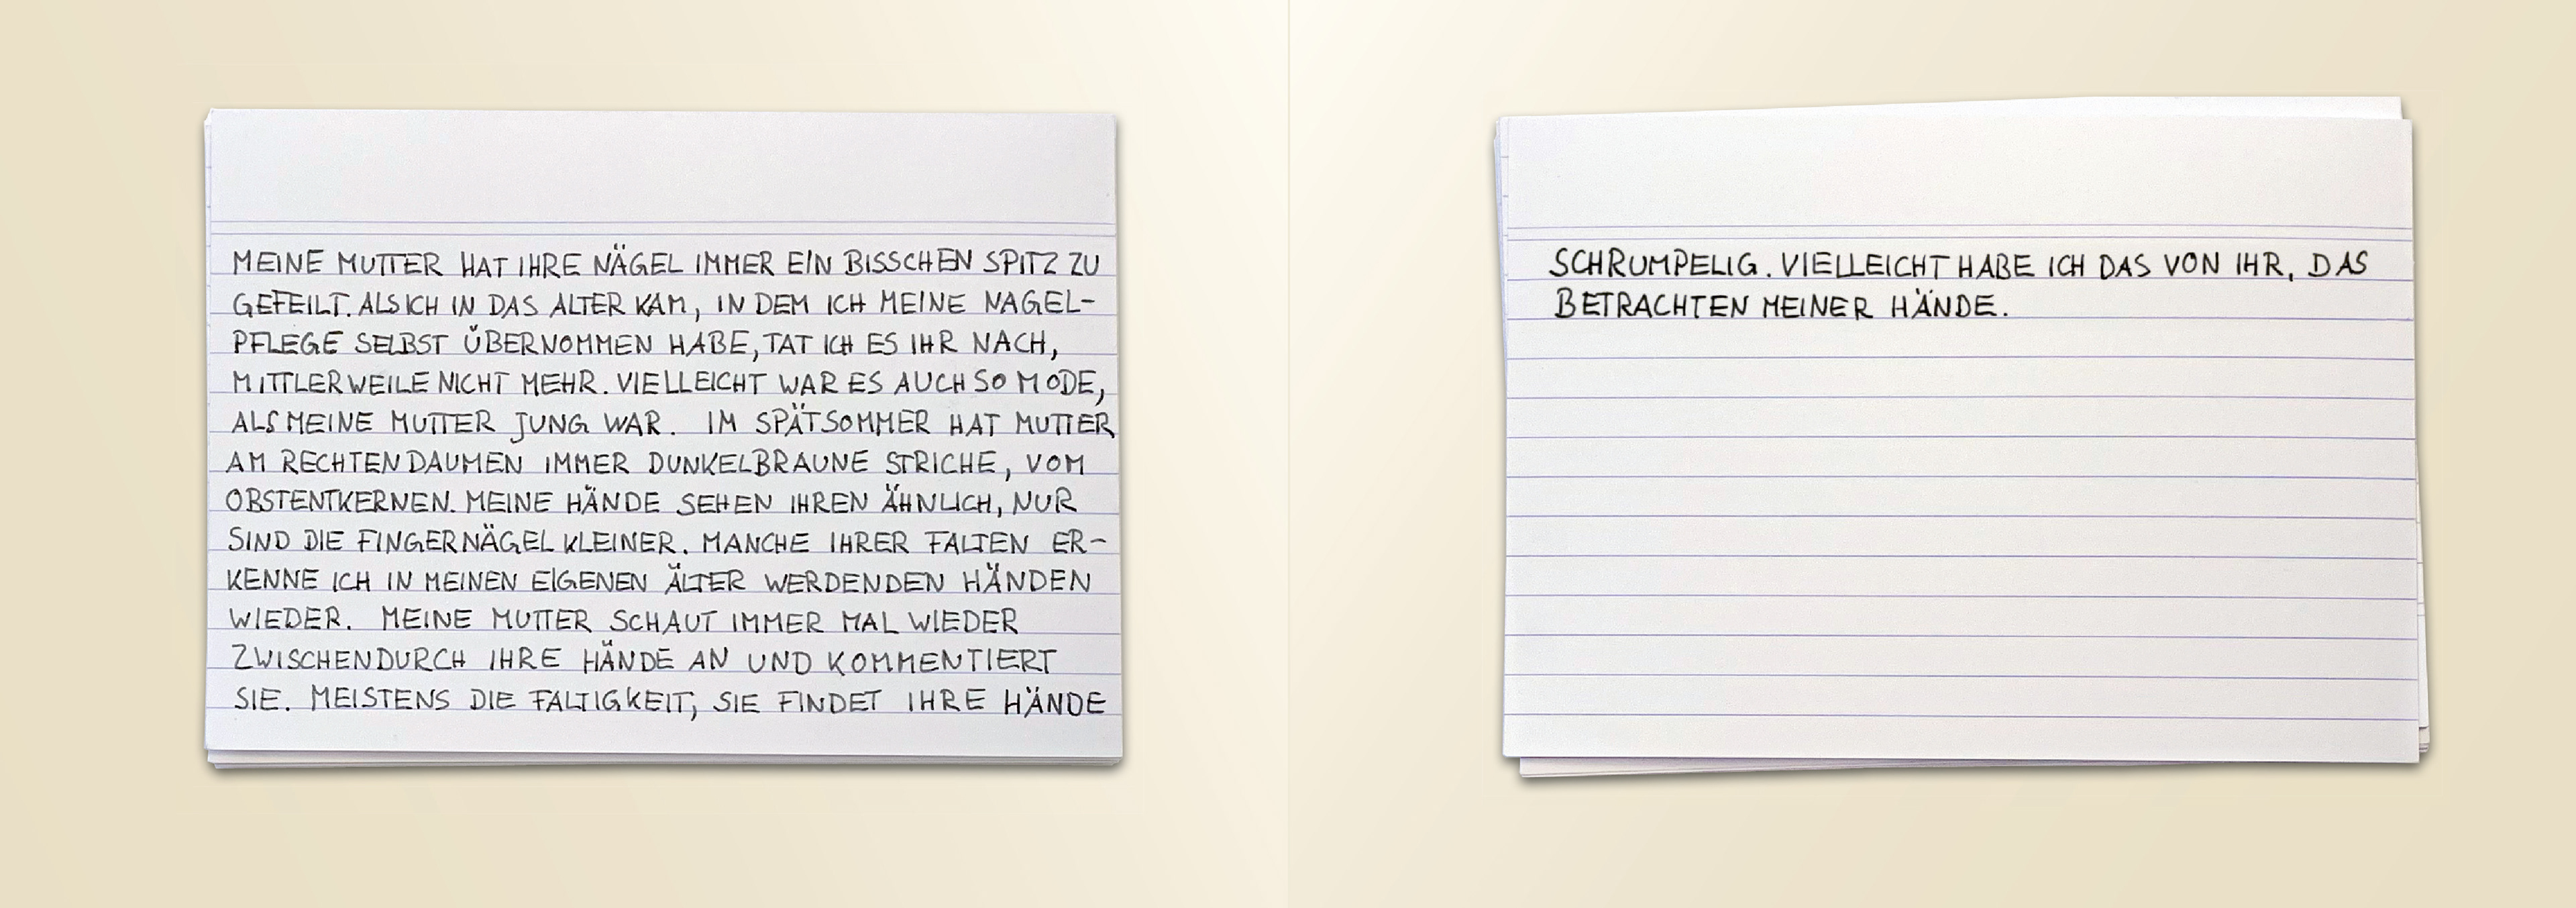 MEINE MUTTER HAT IHRE NÄGEL IMMER EIN BISSCHEN SPITZ ZU
GEFEILT. ALS ICH IN DAS ALTER KAM, IN DEM ICH MEINE NAGEL-
PFLEGE SELBST ÜBERNOMMEN HABE, TAT ICH ES IHR NACH,
MITTLERWEILE NICHT MEHR. VIELLEICHT WAR ES AUCH SO MODE,
ALS MEINE MUTTER JUNG WAR. IM SPÄTSOMMER HAT MUTTER
AM RECHTEN DAUMEN IMMER DUNKELBRAUNE STRICHE, VOM
OBSTENTKERNEN. MEINE HÄNDE SEHEN IHREN ÄHNLICH, NUR
SIND DIE FINGERNÄGEL KLEINER. MANCHE IHRER FALTEN ER-
KENNE ICH IN MEINEN EIGENEN ÄLTER WERDENDEN HÄNDEN
WIEDER. MEINE MUTTER SCHAUT IMMER MAL WIEDER
ZWISCHENDURCH IHRE HÄNDE AN UND KOMMENTIERT
SIE. MEISTENS DIE FALTIGKEIT, SIE FINDET IHRE HÄNDE
SCHRUMPELIG. VIELLEICHT HABE ICH DAS VON IHR, DAS
BETRACHTEN MEINER HÄNDE.